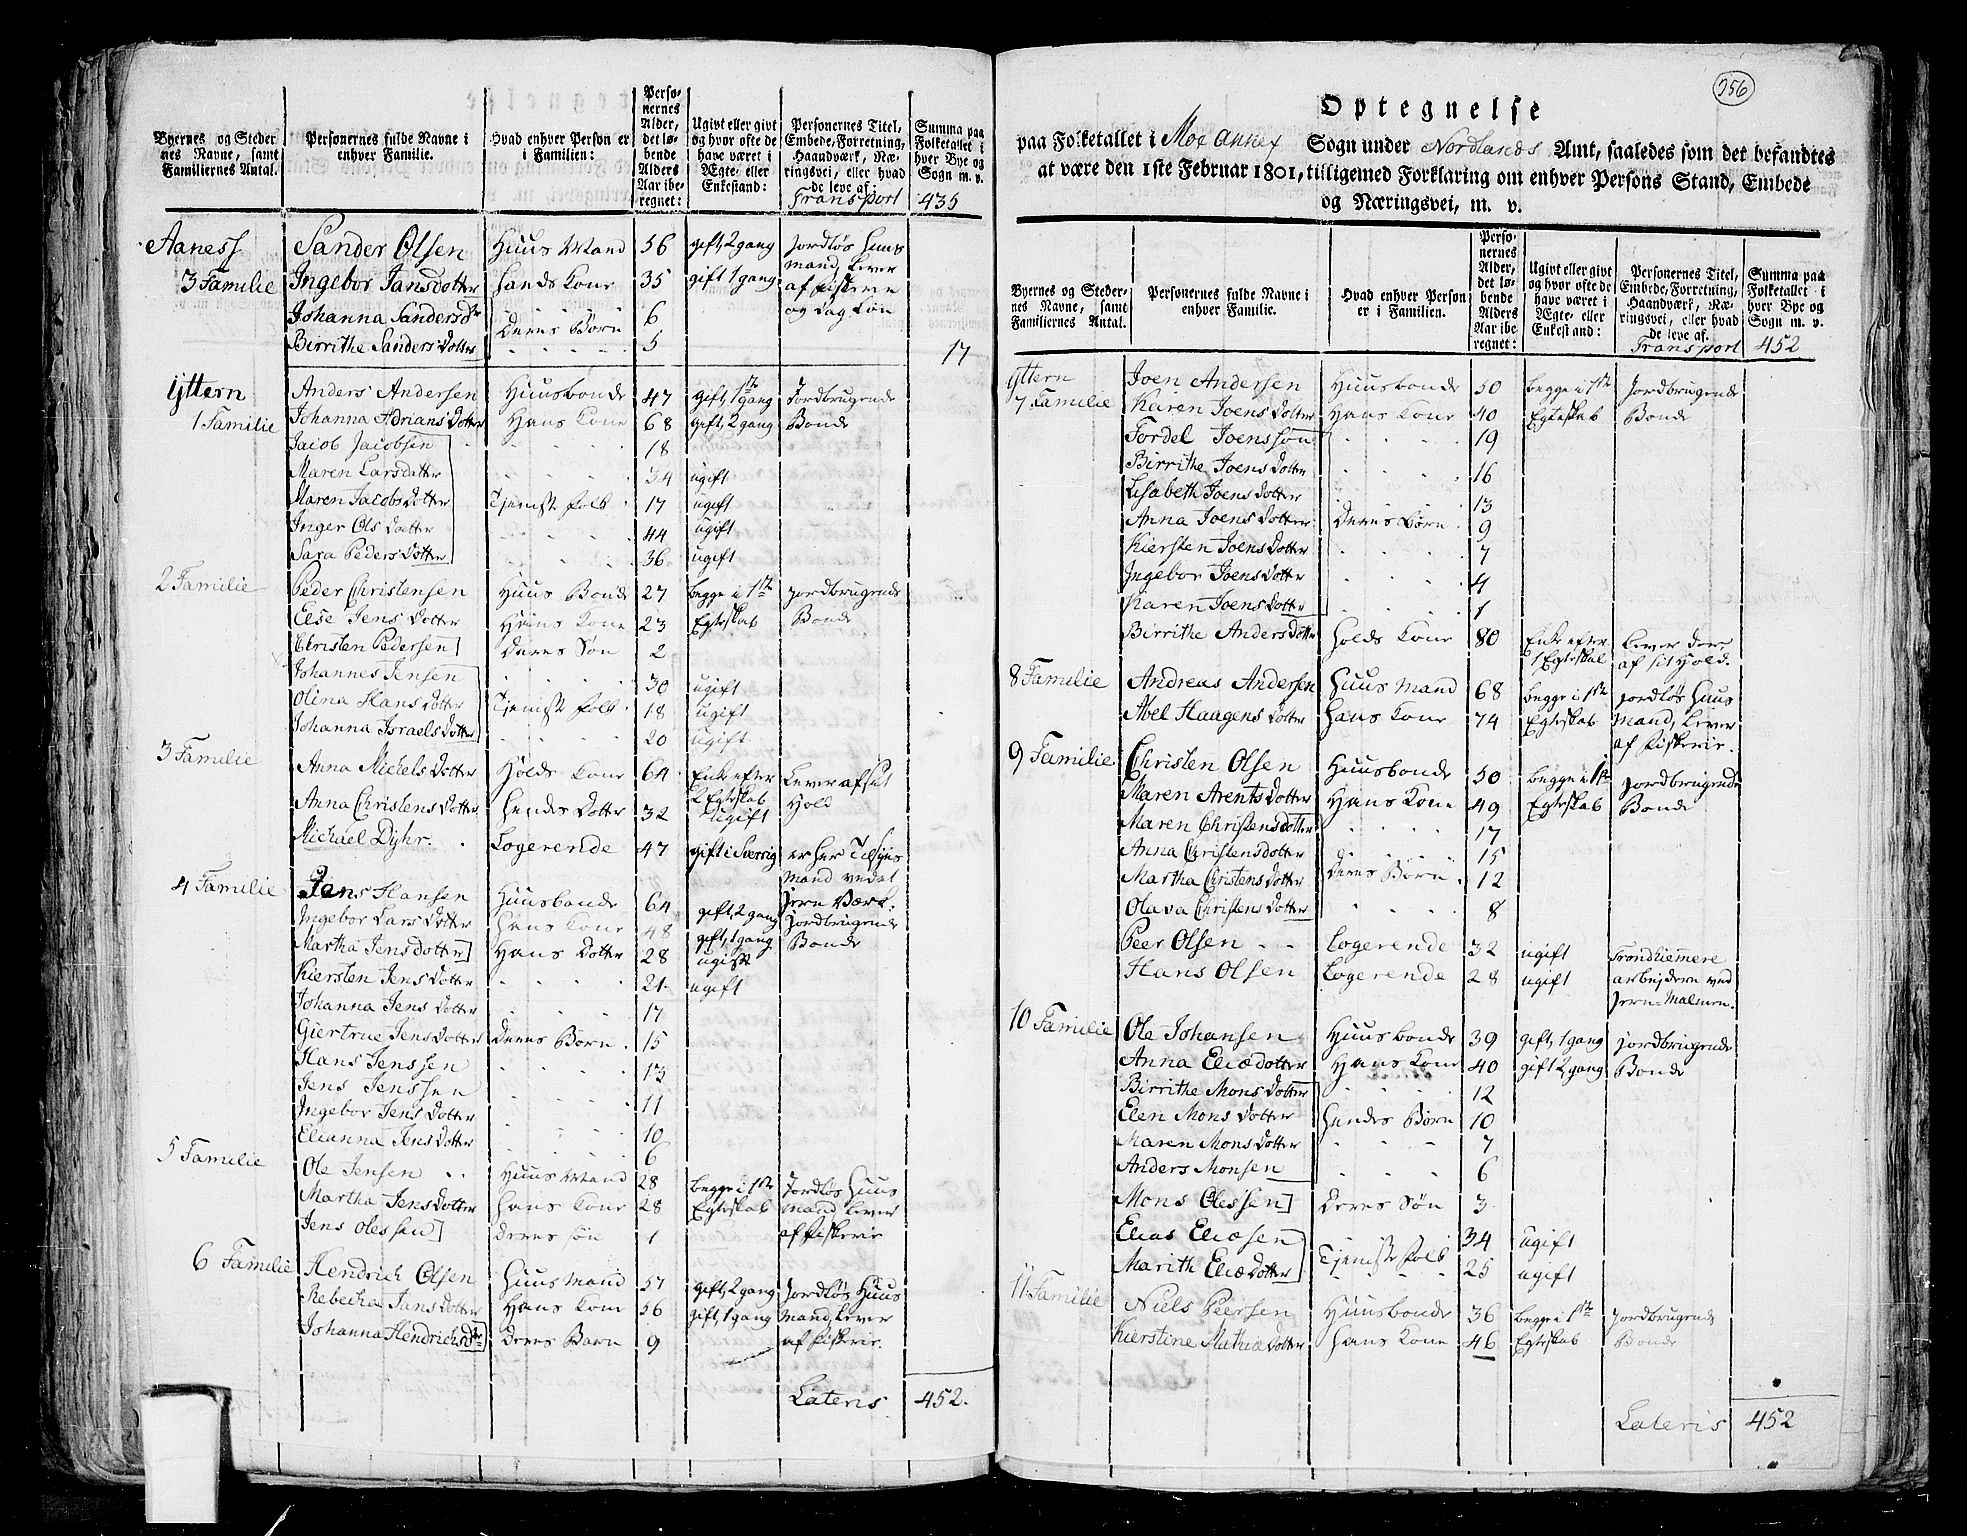 Byernes og Steder nes Navne, samt Familiernes Antal.
Personernes fulde Navne i enhver Familie.
Hvad enhver Person er i Familien:
Personernes Alder, det løbende Alders Aar iberegnet:
Ugivt eller givt og hvor ofte de have været i Ægte- eller Enkestand:
Personernes Titel, Embede, Forretning, Haandværk, Næringsvei, eller hvad de leve af.
Summa paa Folketallet i hver Bye og Sogn m. v.
Transport 435
Aaness Sander Olsen Huus Mand 56 gift, 2 gang Jordløs Huus
3 Familie Ingebor Jansdotter Hands Kone 35 gift 1 gang mand, Lever
af fiskerie
Johanna Sandersdtr 6 og Dag Løn
Deres Børn
Birrithe Sanders Dotter 5
17
Yttern Anders Andersen Huusbonde 47 gift, 1ste gang Jordbrugende
1 Familie Johanna Adrians Dotter Hans Kone 68 gift, 2 gang Bonde
Jacob Jacobsen 18
Maren Larsdatter 34 ugift
Maren Jacobs Dotter Tjeniste folk 17 ugift
Inger Ols Datter 44 ugift
Sara Peders Dotter 36 ugift
2 Familie Peder Christensen Huus Bonde 27 begge i 1ste Jordbrugende
Else Jens Dotter Hans Kone 23 Egteskab Bonde
Christen Pedersen Deres Søn 2
Johannes Jensen 30 ugift
Olina Hans Dotter Tjeniste folk 18 ugift
Johanna Israels Dotter 20 ugift
3 Familie Anna Michels Dotter Holds Kone 64 Enke efter Lever af sit
2 Egteskab Hold
Anna Christens Dotter Hendes Dotter 32 ugift
Michael Dyhr Logerende 47 gift i Sverrig er her Tilsyns
mand ved et
4 Familie Jens Hansen Huusbonde 64 gift, 2 gang Jern Værk.
Ingebor Lars Dotter Hans Kone 48 gift, 1 gang Jordbrugende
Martha Jens Dotter Hans Dotter 28 ugift Bonde
Kiersten Jens Dotter 21 ugift
Johanna Jens Dotter 17
Giertrue Jens Dotter Deres Børn 15
Hans Jenssen 13
Jens Jenssen 11
Ingebor Jens Dotter 10
Elianna Jens Dotter 6
5 Familie Ole Jensen Huus Mand 28 begge i 1ste Jordløs Huus
Martha Jens Dotter Hans Kone 28 Egteskab mand, Lever
Jens Olessen Deres Søn 1 af Fiskerie
6 Familie Hendrich Olsen Huus Mand 57 gift, 2 gang Jordløs Huus
Rebecka Jans Dotter Hans Kone 56 gift, 1 gang mand, Lever
Johanna Hendrichs Dtr Deres Barn 9 af Fiskerie.
Lateris 452.
356
Optegnelse
paa Folketallet i Moe Annex Sogn under Nordlands Amt, saaledes som det befandtes
at være den 1ste Februar 1801, tilligemed Forklaring om enhver Persons Stand, Embede
og Næringsvei, m. v.
Byernes og Stedernes Navne, samt Familiernes Antal.
Personernes fulde Navne i enhver Familie.
Hvad enhver Person er i Familien.
Personernes Alder, det løbende Alders Aar iberegnet:
Ugivt eller givt og hvor ofte de have været i Ægte- eller Enkestand:
Personernes Titel, Embede, Forretning, Haandværk, Næringsvei, eller hvad de leve af.
Summa paa Folketallet i hver Bye og Sogn m. v.
Transport 452
Yttern Joen Andersen Huusbonde 50 begge i 1ste Jordbrugende
7 Familie Karen Joens Dotter Hans Kone 40 Egteskab Bonde
Tordel Joenssøn 19
Birrithe Joens Dotter 16
Lisabeth Joens Dotter 13
Anna Joens Dotter Deres Børn 9
Kiersten Joens Dotter 7
Ingebor Joens Dotter 4
Karen Joens Dotter 1
Birrithe Anders Dotter Holds Kone 80 Enke efter Lever der
1 Egteskab af sit Hold.
8 Familie Andreas Andersen Huus Mand 68 begge i 1ste Jordløs Huus
Abel Haagens Dotter Hans Kone 74 Egteskab Mand, Lever
af Fiskerie.
9 Familie Christen Olsen Huusbonde 50 begge i 1ste Jordbrugende
Maren Arents Dotter Hans Kone 49 Egteskab Bonde
Maren Christens Dotter 17
Anna Christensdotter 15
Martha Christens Dotter Deres Børn 12
Olava Christens Dotter 8
Peer Olsen Logerende 32 ugift Trondhiemere
Hans Olsen Logerende 28 ugift arbejdere ved
Jern-Malmen.
10 Familie Ole Johansen Huusbonde 39 gift, 1 gang Jordbrugende
Anna Eliædotter Hans Kone 40 gift 2 gang Bonde
Birrithe Mons Dotter 12
Elen Mons Dotter Hendes Børn 10
Maren Mons Dotter 7
Anders Monsen 6
Mons Olessen Deres Søn 3
Elias Eliæsen 34 ugift
Tjeniste folk
Marith Eliæ Dotter 25 ugift
11 Familie Niels Peersen Huusbonde 36 begge i 1ste Jordbrugende
Kierstine Mathiæ Dotter Hans Kone 46 Egteskab Bonde
Lateris 452